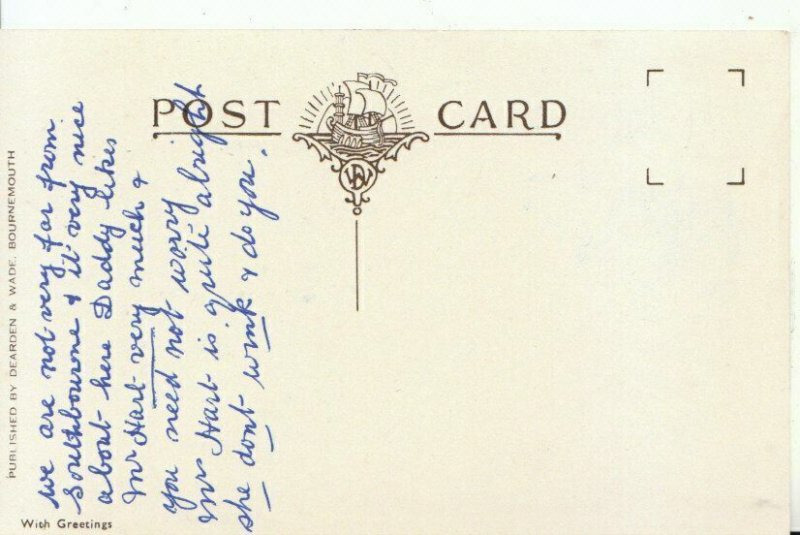 POST CARD
we are not very far from
Southbourne & it very nice
about here Daddy likes
Mr Hart very much &
you need not worry
Mrs Hart is quite alright
she dont wink & do you.
PUBLISHED BY DEARDEN & WADE, BOURNEMOUTH
With Greetings